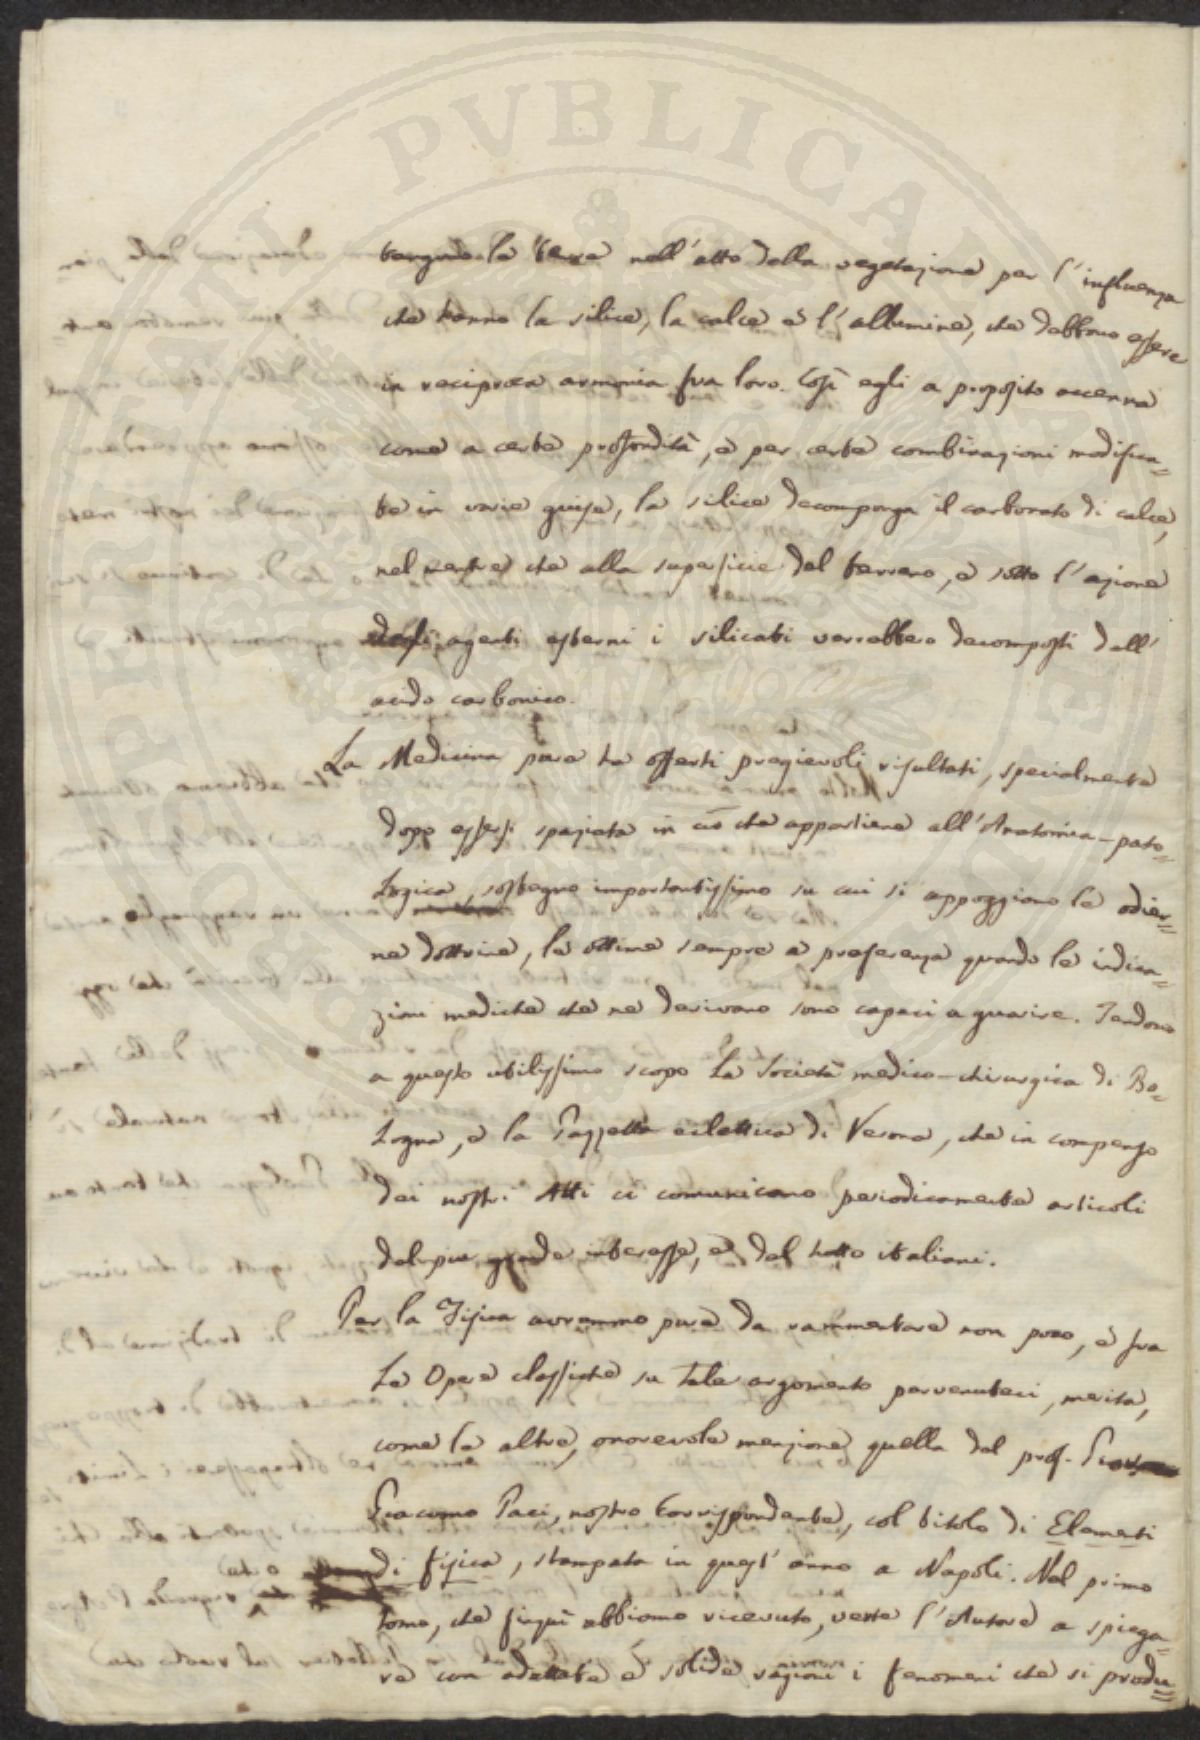 PERITI PVBLICAE
tengono le terre nell'atto della vegetazione per l'influenza
che hanno la silice, la calce e l'allumina, che debbono essere
in reciproca armonia fra loro. Così egli a proposito accenna
come a certe profondità, e per certe combinazioni modifica=
te in varie guise, la silice decomponga il carbonato di calce,
nel mentre che alla superficie del terreno, e sotto l'azione
degli agenti esterni i silicati verrebbero decomposti dall'
acido carbonico.
La Medicina pure ha offerti pregievoli risultati, specialmente
dopo essersi spaziata in ciò che appartiene all'Anatomia-pato=
logica, sostegno importantissimo su cui si appoggiano le odier=
ne dottrine, le ottime sempre a preferenza quando le indica=
zioni mediche che ne derivano sono capaci a guarire. Tendono
a questo utilissimo scopo la Società medico-chirurgica di Bo=
logna, e la Gazzetta eclettica di Verona, che in compenso
dei nostri Atti ci comunicano periodicamente articoli
del più grande interesse, e del tutto italiani.
Per la Fisica avremmo pure da rammentare non poco, e fra
le Opere classiche su tale argomento pervenuteci, merita,
come le altre, onorevole menzione quella del prof.
Giacomo Paci, nostro Corrispondente, col titolo di Elementi
di fisica, stampata in quest'anno a Napoli. Nel primo
tomo, che finquì abbiamo ricevuto, verte l'Autore a spiega=
re con adattate e solide ragioni i fenomeni che si produ=